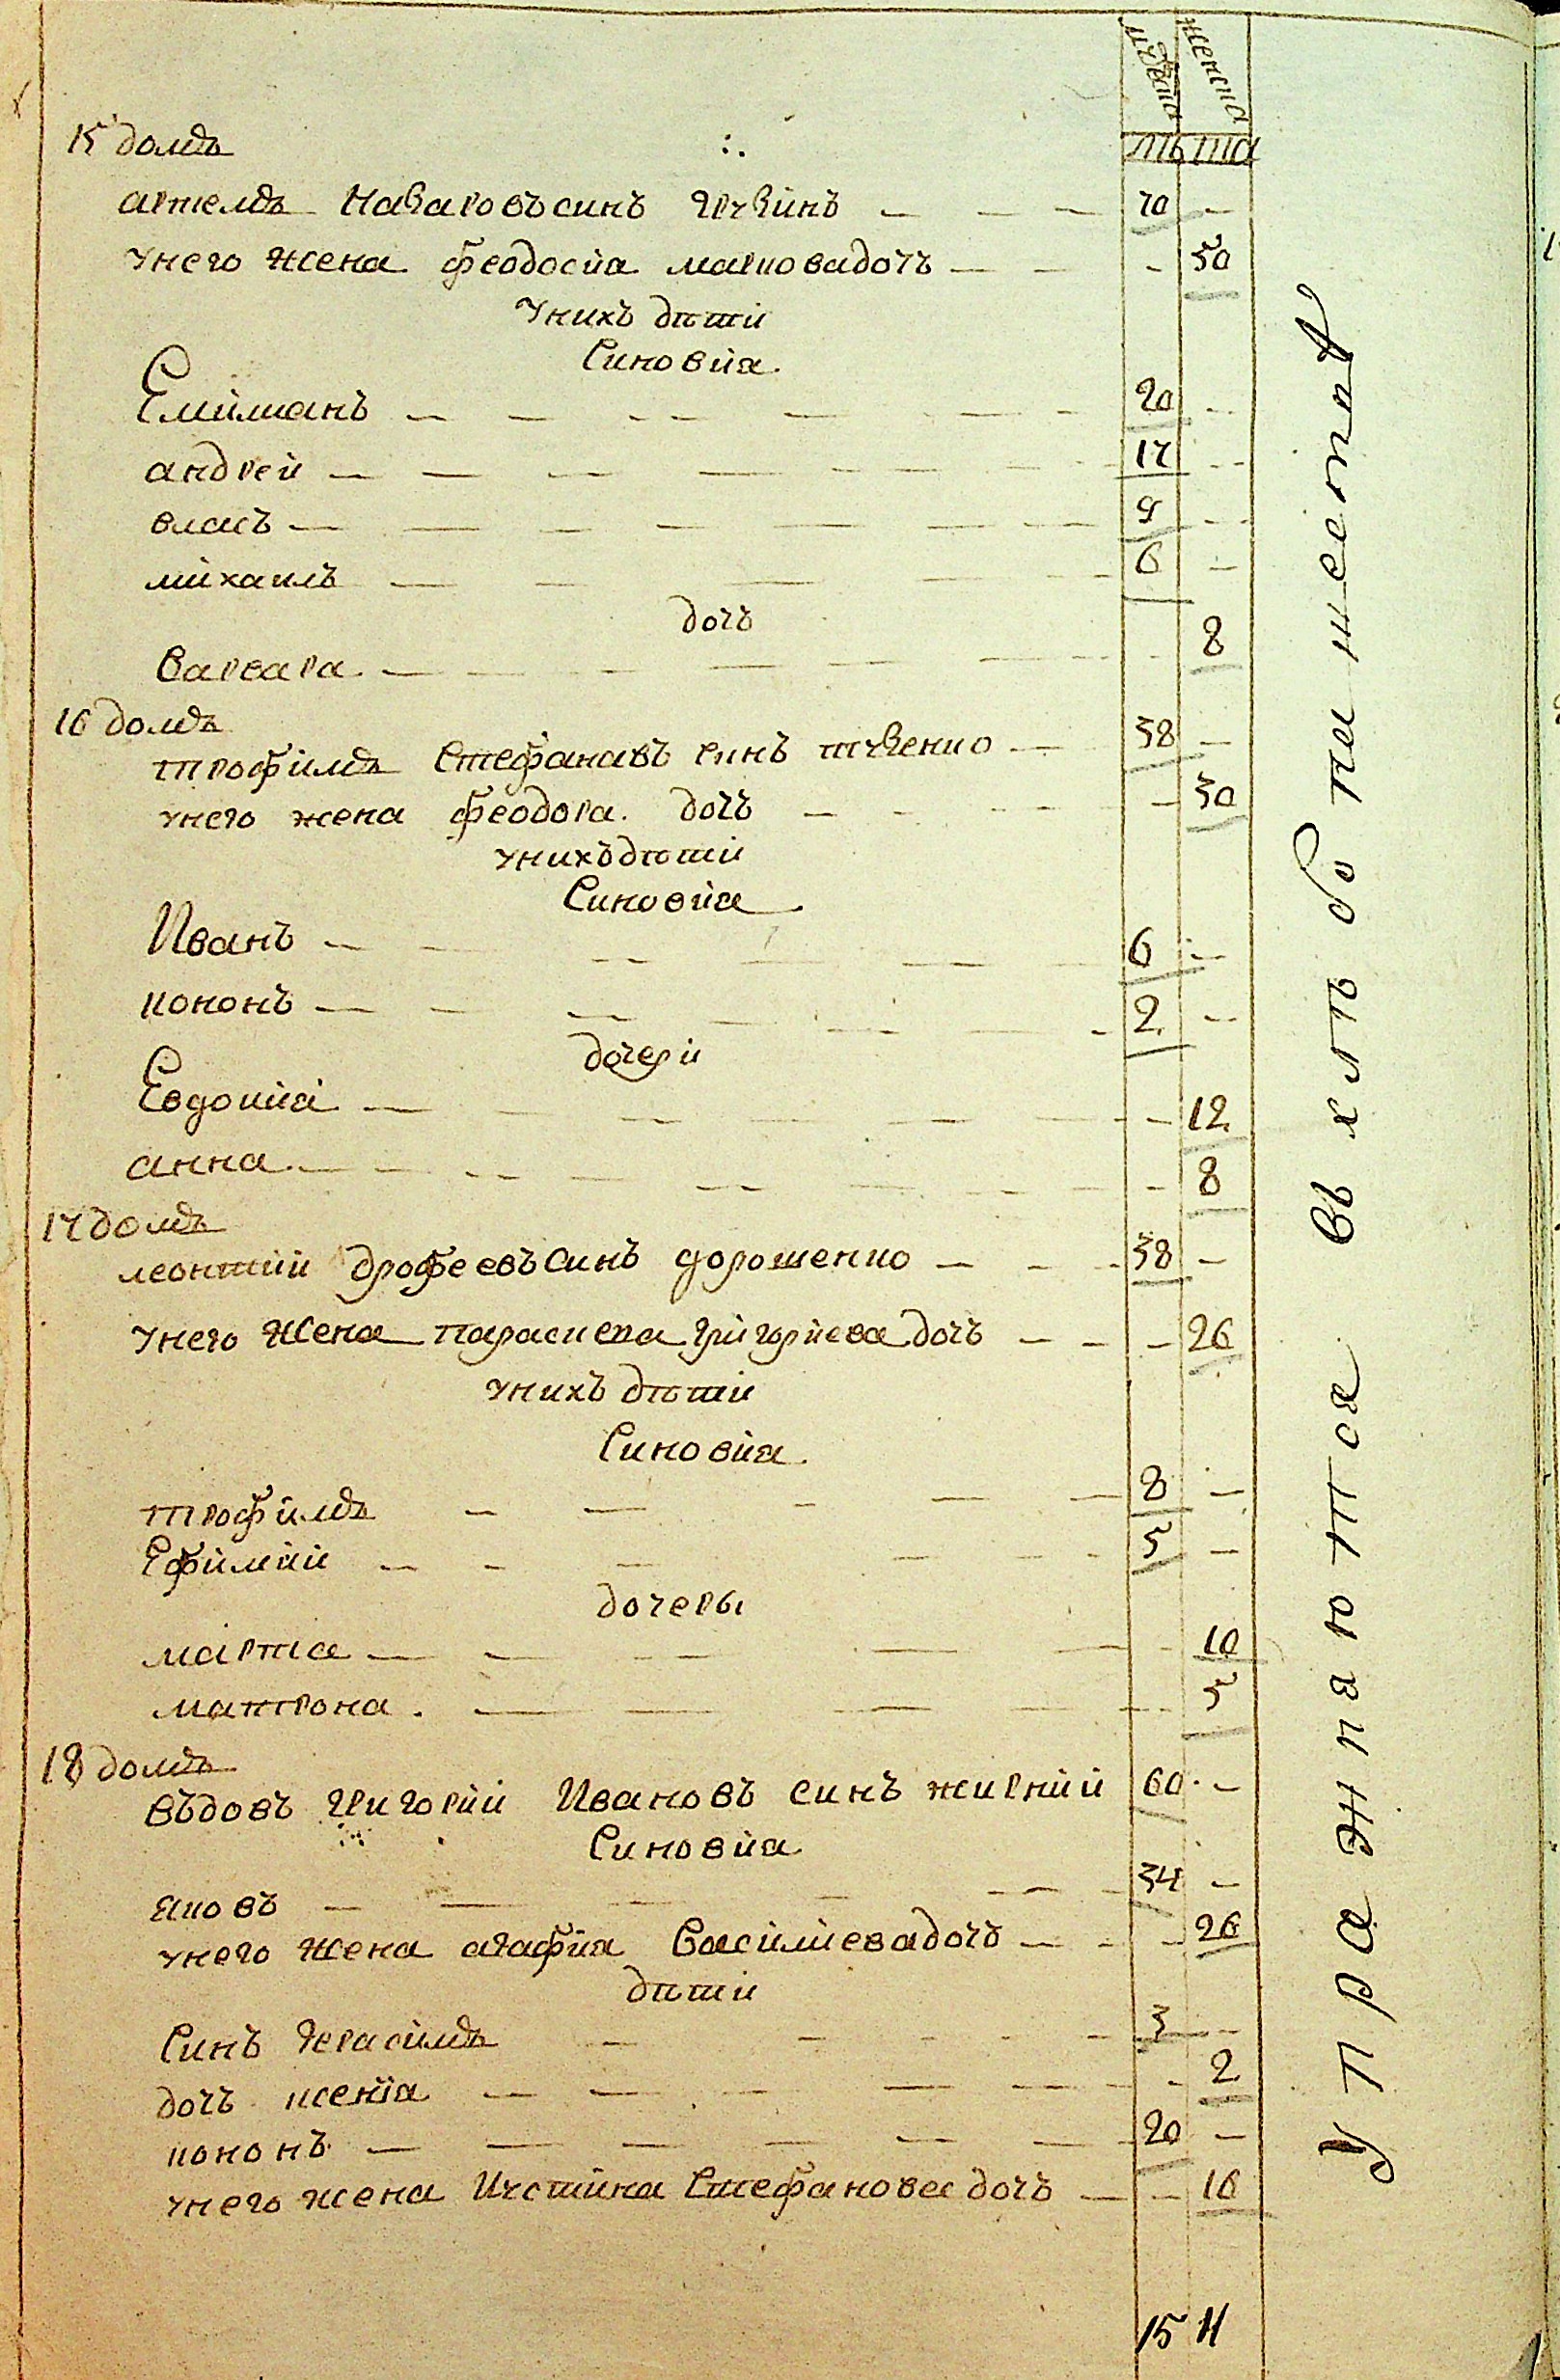 мужска женска
лѣта
15 домъ
артемъ Назаровъ синъ
70 —
унего жена феодосиа марковадочъ — — 50
унихъ дѣти
Синовиа
Емилианъ — — 20 —
андрей — — 17 —
власъ — — 9 —
михаилъ — — 6 —
дочъ
варвара — — 8
16 домъ
трофимъ Стефановъ синъ ткаченко — 38 —
унего жена феодора дочъ — — 30
унихъ дѣти
Синовиа
Иванъ — — 6 —
кононъ — — 2 —
дочери
Евдокиа — — 12
анна — — 8
17 домъ
леонтий дорофеевъ синъ дорошенко — — 38 —
унего жена параскева григориева дочъ — — 26
унихъ дѣти
Синовиа
трофимъ — — 8 —
Ефимий — — 5 —
дочеры
марта — — 10
матрона — — 5
18 домъ
въдовъ григорий Ивановъ синъ жирний 60 —
Синовиа
яковъ — — 34 —
унего жена агафиа василиевадочъ — — 26
дѣти
Синъ герасимъ — — 3 —
дочъ ксениа — — 2
кононъ — — 20 —
унего жена Иустина Стефановва дочъ — — 16
15 11
Упражняются въ хлѣбопашествѣ